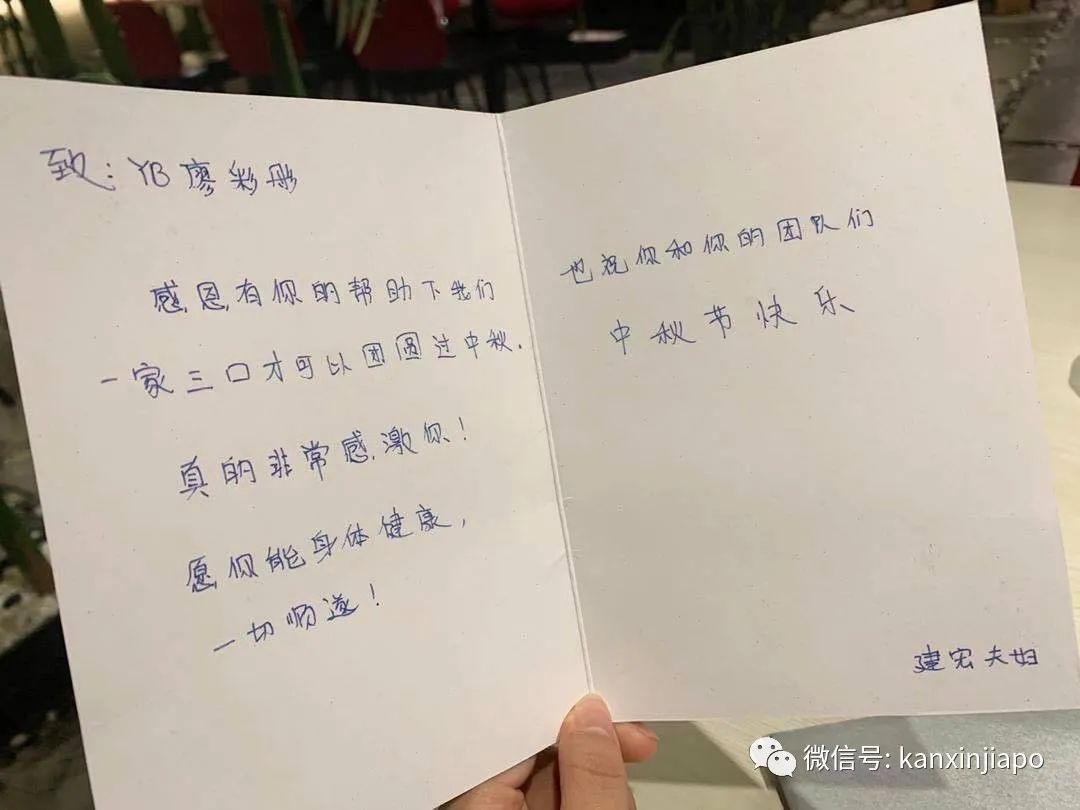 致：YB 廖彩彤
感恩有你的帮助下我们
一家三口才可以团圆过中秋.
真的非常感激你！
愿你能身体健康，
一切顺遂！
也祝你和你的团队们
中秋节快乐
建宏夫妇
微信号: kanxinjiapo